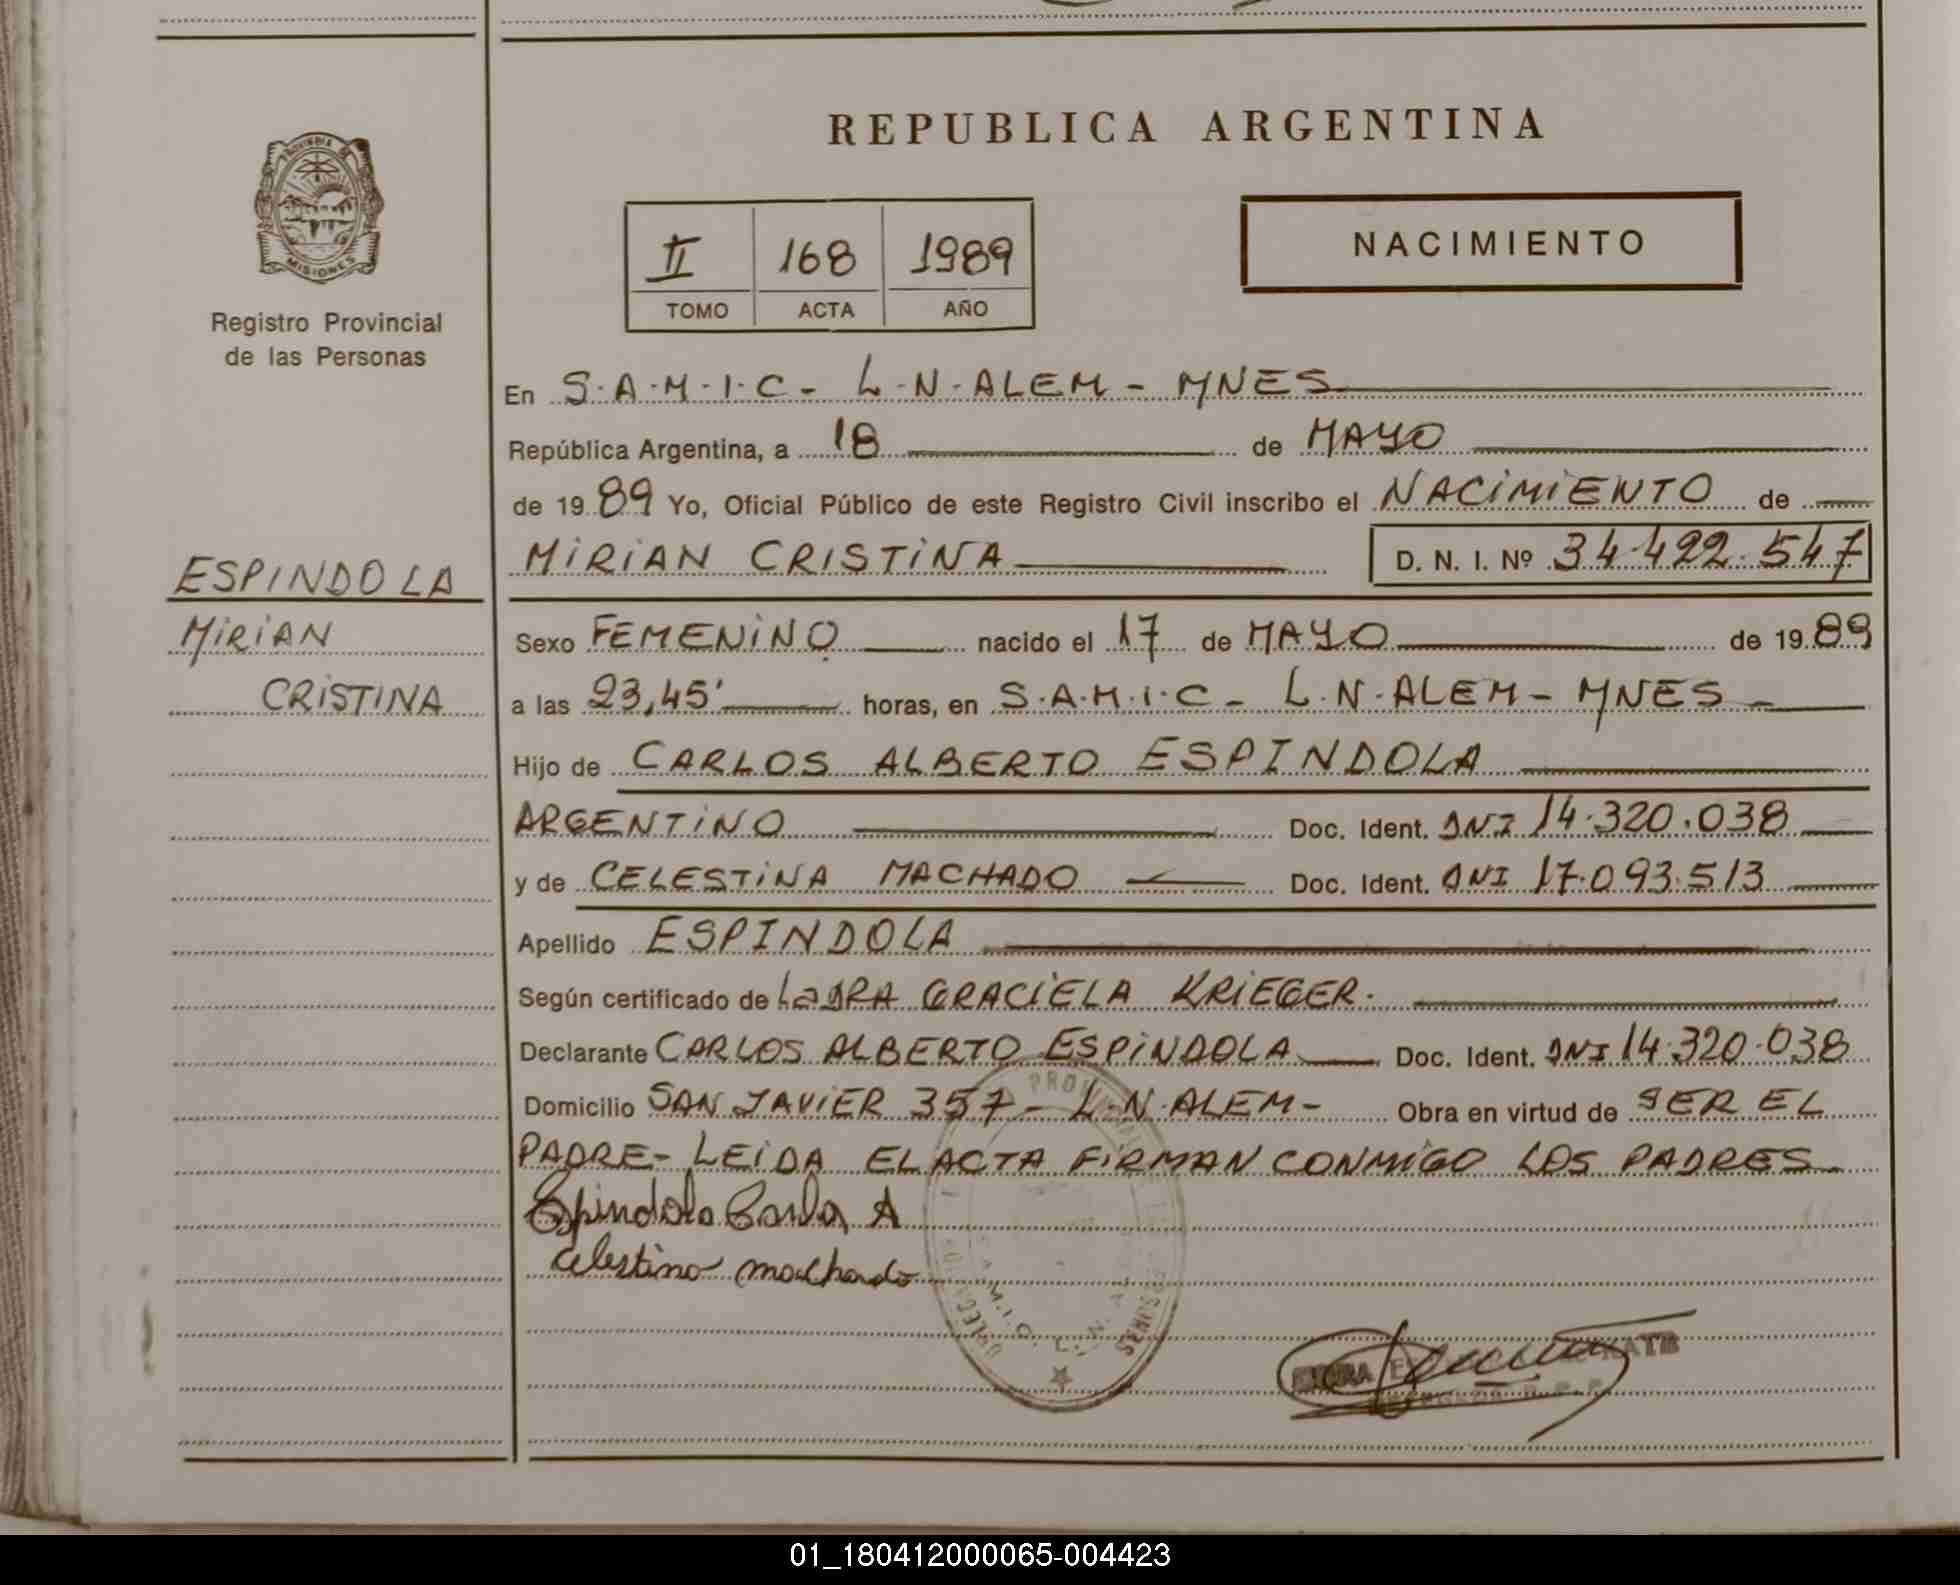 REPUBLICA ARGENTINA
PROVINCIA DE
MISIONES
Registro Provincial
de las Personas
II 168 1989
TOMO ACTA AÑO
NACIMIENTO
En S.A.M.I.C - L.N.ALEM - MNES
República Argentina, a 18 de MAYO
de 1989 Yo, Oficial Público de este Registro Civil inscribo el NACIMIENTO de
MIRIAN CRISTINA D. N. I. Nº 34.422.547
ESPINDOLA
MIRIAN
CRISTINA
Sexo FEMENINO nacido el 17 de MAYO de 1989
a las 23,45' horas, en S.A.M.I.C - L.N.ALEM - MNES -
Hijo de CARLOS ALBERTO ESPINDOLA
ARGENTINO Doc. Ident. DNI 14.320.038
y de CELESTINA MACHADO Doc. Ident. DNI 17.093.513
Apellido ESPINDOLA
Según certificado de LA DRA GRACIELA KRIEGER.
Declarante CARLOS ALBERTO ESPINDOLA Doc. Ident. DNI 14.320.038
Domicilio SAN JAVIER 357 - L.N.ALEM - Obra en virtud de SER EL
PADRE - LEIDA EL ACTA FIRMAN CONMIGO LOS PADRES
Espindola Carlos A
Celestina machado
S.A.M.I.C. L.N.
01_180412000065-004423